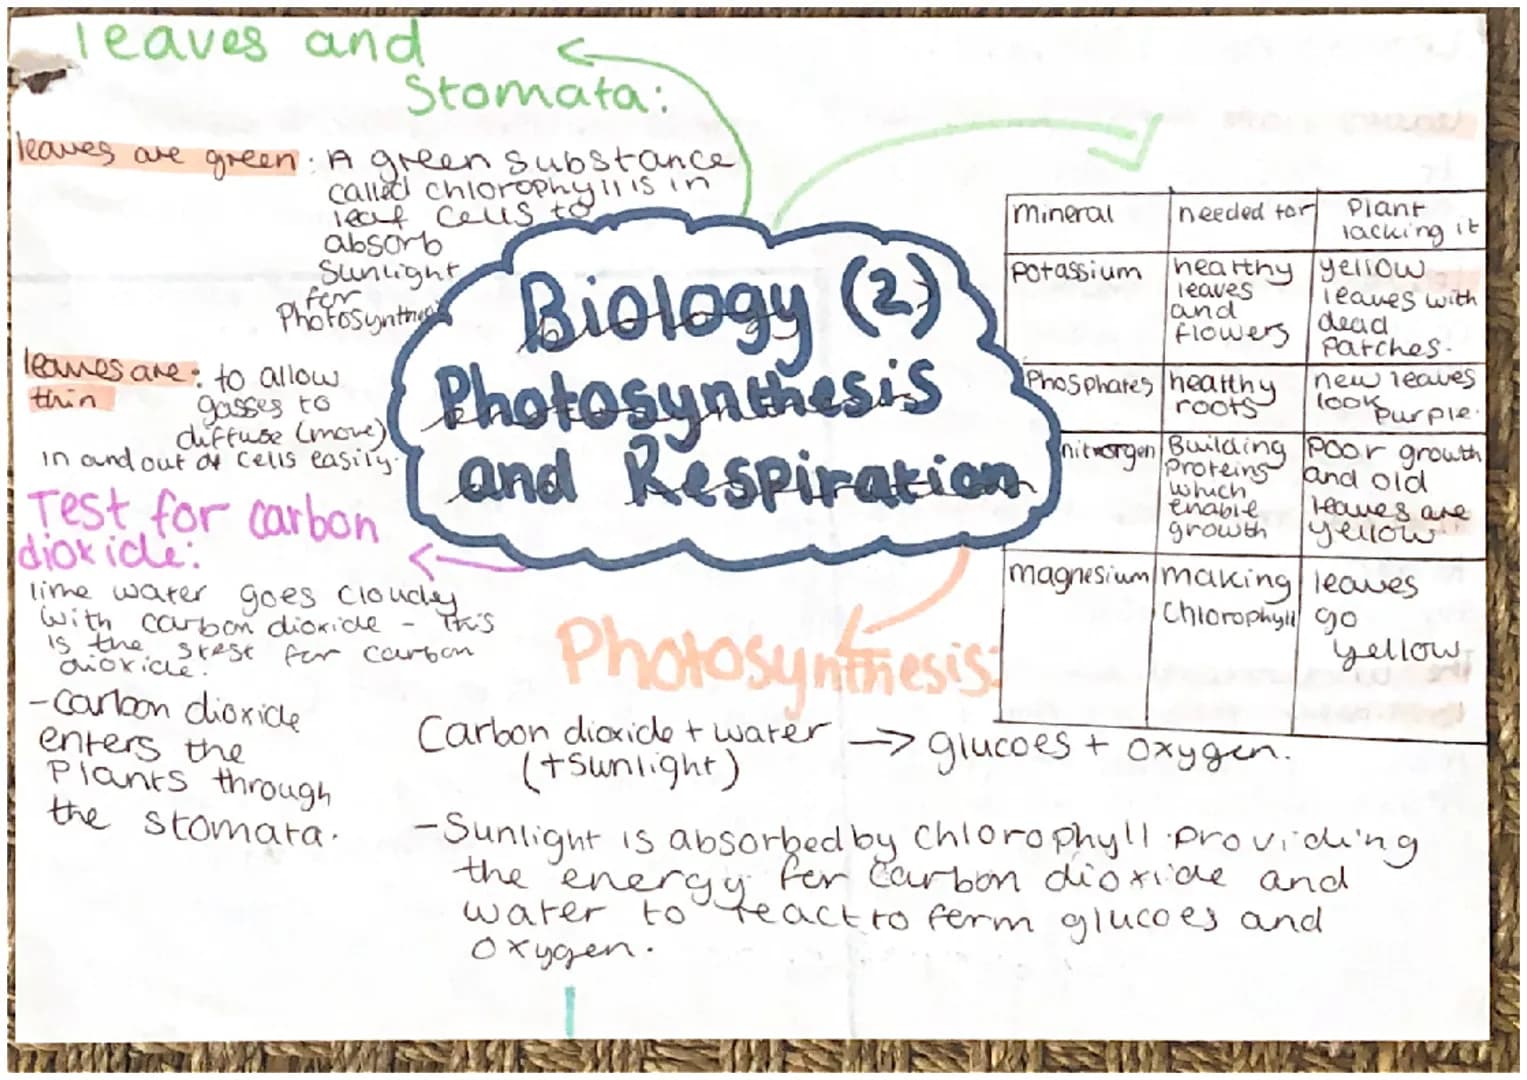 leaves and
Stomata:
leaves are green: A green substance
called chlorophyll is in
leaf cells to
absorb
Sunlight
for
Photosynthesis
leaves are: to allow
thin
gasses to
diffuse (move)
in and out of cells easily.
Test for carbon
dioxide:
lime water goes cloudey
with carbon dioxide - this
is the stest for carbon
dioxide.
- carbon dioxide
enters the
Plants through
the stomata.
Biology (2)
Photosynthesis
and Respiration
mineral needed for Plant
lacking it
Potassium healthy yellow
leaves leaves with
and dead
flowers patches.
Phosphates healthy new leaves
roots look purple.
nitrogen Building Poor growth
proteins and old
which leaves are
enable yellow
growth
magnesium making leaves
Chlorophyll go
yellow
Photosynthesis:
Carbon dioxide + water → glucoes + oxygen.
(+sunlight)
- Sunlight is absorbed by chlorophyll. providing
the energy for carbon dioxide and
water to react to form glucoes and
oxygen.